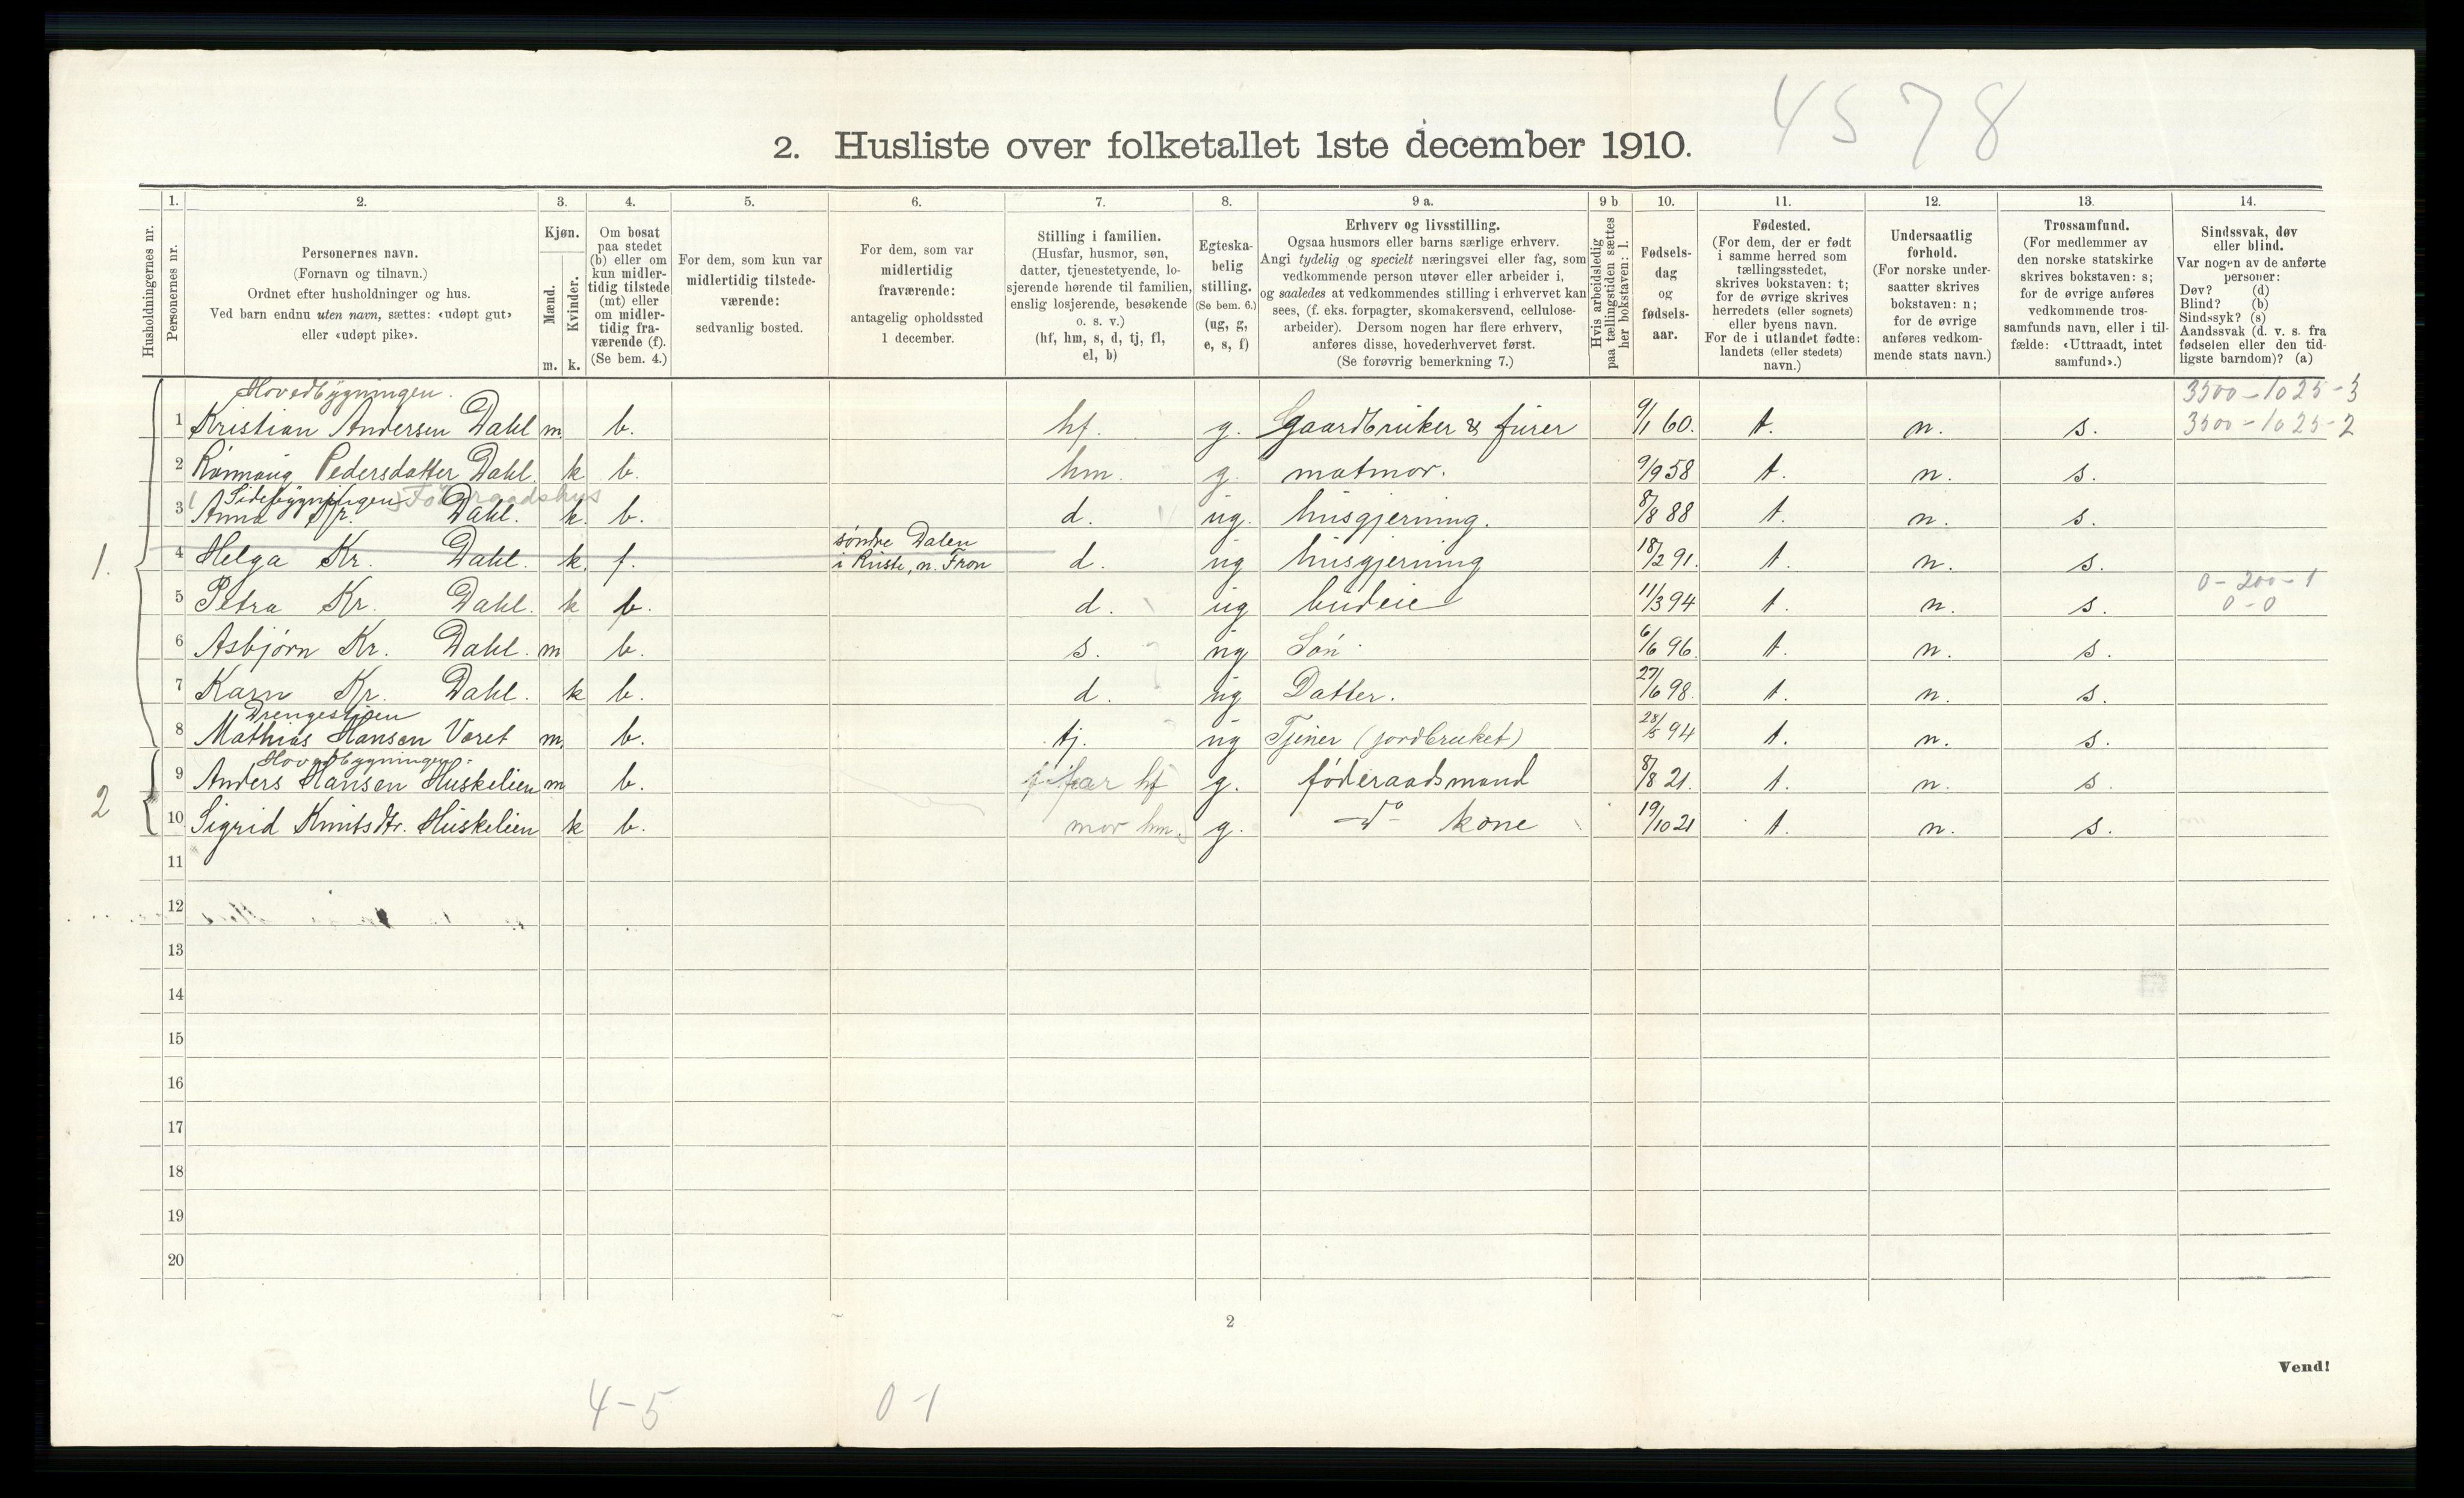 4578
2. Husliste over folketallet 1ste december 1910.
Husholdningernes nr.
1.
Personernes nr.
2.
Personernes navn.
(Fornavn og tilnavn.)
Ordnet efter husholdninger og hus.
Ved barn endnu uten navn, sættes: «udøpt gut»
eller «udøpt pike».
3.
Kjøn.
Mænd.
Kvinder.
m. k.
4.
Om bosat
paa stedet
(b) eller om
kun midler-
tidig tilstede
(mt) eller
om midler-
tidig fra-
værende (f).
(Se bem. 4.)
5.
For dem, som kun var
midlertidig tilstede-
værende:
sedvanlig bosted.
6.
For dem, som var
midlertidig
fraværende:
antagelig opholdssted
1 december.
7.
Stilling i familien.
(Husfar, husmor, søn,
datter, tjenestetyende, lo-
sjerende hørende til familien,
enslig losjerende, besøkende
o. s. v.)
(hf, hm, s, d, tj, fl,
el, b)
8.
Egteska-
belig
stilling.
(Se bem. 6.)
(ug, g,
e, s, f)
9 a.
Erhverv og livsstilling.
Ogsaa husmors eller barns særlige erhverv.
Angi tydelig og specielt næringsvei eller fag, som
vedkommende person utøver eller arbeider i,
og saaledes at vedkommendes stilling i erhvervet kan
sees, (f. eks. forpagter, skomakersvend, cellulose-
arbeider). Dersom nogen har flere erhverv,
anføres disse, hovederhvervet først.
(Se forøvrig bemerkning 7.)
9 b
Hvis arbeidsledig
paa tællingstiden sættes
her bokstaven: l.
10.
Fødsels-
dag
og
fødsels-
aar.
11.
Fødested.
(For dem, der er født
i samme herred som
tællingsstedet,
skrives bokstaven: t;
for de øvrige skrives
herredets (eller sognets)
eller byens navn.
For de i utlandet fødte:
landets (eller stedets)
navn.)
12.
Undersaatlig
forhold.
(For norske under-
saatter skrives
bokstaven: n;
for de øvrige
anføres vedkom-
mende stats navn.)
13.
Trossamfund.
(For medlemmer av
den norske statskirke
skrives bokstaven: s;
for de øvrige anføres
vedkommende tros-
samfunds navn, eller i til-
fælde: «Uttraadt, intet
samfund».)
14.
Sindssvak, døv
eller blind.
Var nogen av de anførte
personer:
Døv? (d)
Blind? (b)
Sindssyk? (s)
Aandssvak (d. v. s. fra
fødselen eller den tid-
ligste barndom)? (a)
Hovedbygningen. 3500-1025-3
1. 1 Kristian Andersen Dahl m b. hf. g. Gaardbruker & furer 9/1 60. t. n. s. 3500-1025-2
2 Rønnaug Pedersdatter Dahl k b. hm. g. matmor. 9/9 58 t. n. s.
(Sidebygningen) Føderaadshus
3 Anna Kr. Dahl. k. b. d. ug. husgjerning. 8/8 88 t. n. s.
søndre Dalen
4 Helga Kr. Dahl. k. f. i Ruste, n. Fron d. ug husgjerning 18/2 91. t. n. s.
0-200-1
5 Petra Kr. Dahl. k b. d. ug budeie 11/3 94 t. n. s. 0-0
6 Asbjørn Kr. Dahl. m b. s. ug Søn 6/6 96. t. n. s.
7 Karn Kr. Dahl. k b. d. ug Datter. 27/6 98. t. n. s.
Drengestuen
8 Mathias Hansen Voret m. b. tj. ug Tjener (jordbruket) 28/5 94 t. n. s.
Hovedbygningen.
2 9 Anders Hansen Huskelien m b. far hf g. føderaadsmand 8/8 21. t. n. s
10 Sigrid Knutsdtr. Huskelien k b. mor hm. g. do kone 19/10 21 t. n. s.
11
12
13
14
15
16
17
18
19
20
2
Vend!
4-5 0-1